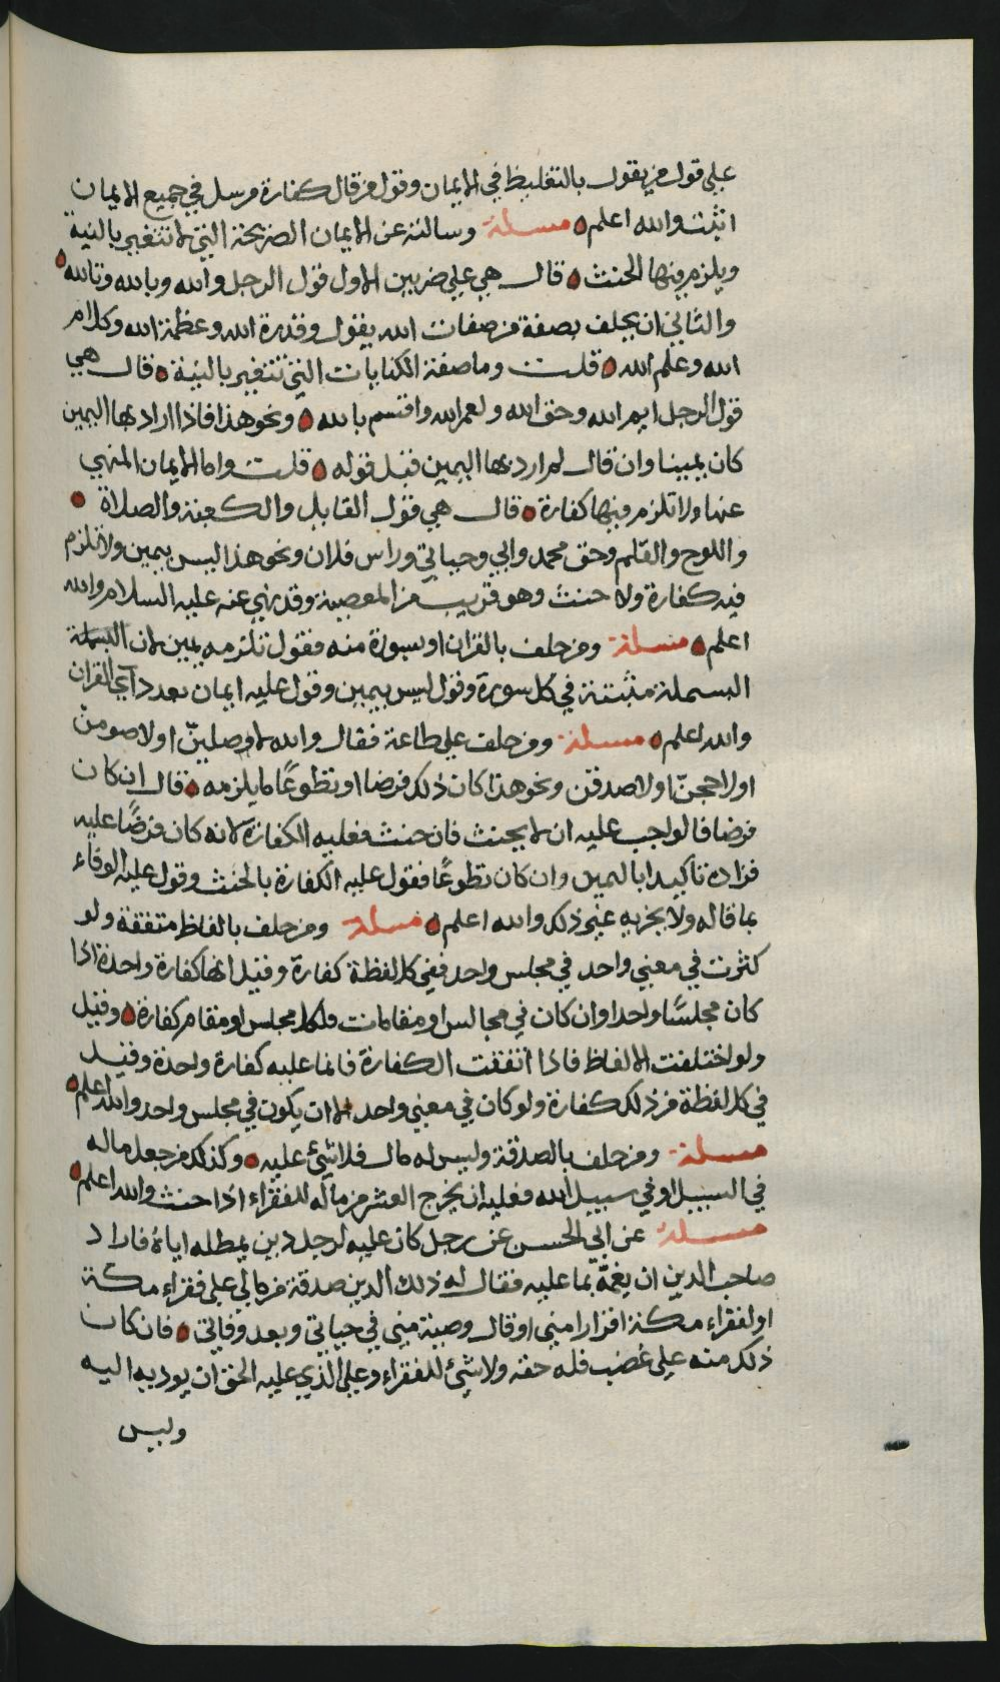 على قول من يقول بالتغليظ في الايمان وقول من قال كفارة مرسل في جميع الايمان
اثبت والله اعلم مسئلة وسالته عن الايمان الصريحة التي لا تتغير بالنية
ويلزم فيها الحنث قال هي على ضربين الاول قول الرجل والله وبالله وتالله
والثاني ان يحلف بصفة من صفات الله يقول وقدرة الله وعظمة الله وكلام
الله وعلم الله قلت وما صفة الكنايات التي تتغير بالنية قال هي
قول الرجل ايم الله وحق الله ولعمر الله واقسم بالله ونحو هذا فاذا اراد بها اليمين
كان يمينا وان قال لم ارد بها اليمين قبل قوله قلت واما الايمان المنهي
عنها ولا تلزم فيها كفارة قال هي قول القايل والكعبة والصلاة
واللوح والقلم وحق محمد وابي وحياتي وراس فلان ونحو هذا ليس بيمين ولا تلزم
فيه كفارة ولا حنث وهو قريب من المعصية وقد نهي عنه عليه السلام والله
اعلم مسئلة ومن حلف بالقران او سورة منه فقول تلزمه يمين لان البسملة
البسملة مثبتة في كل سورة وقول ليس بيمين وقول عليه ايمان بعدد آي القران
والله اعلم مسئلة ومن حلف على طاعة فقال والله لاصلينّ او لاصومنّ
او لاحجنّ او لاصدقن ونحو هذا كان ذلك فرضا او تطوعًا ما يلزمه قال ان كان
فرضا فالواجب عليه ان لا يحنث فان حنث فعليه الكفارة لانه كان فرضًا عليه
فزاده تاكيدا باليمين وان كان تطوعًا فقول عليه الكفارة بالحنث وقول عليه الوفاء
بما قاله ولا يجزيه غير ذلك والله اعلم مسئلة ومن حلف بالفاظ متفقة ولو
كثرت في معنى واحد في مجلس واحد ففي كل لفظة كفارة وقيل انها كفارة واحدة اذا
كان مجلسًا واحدا وان كان في مجالس او مقامات فلكل مجلس او مقام كفارة وقيل
ولو اختلفت الالفاظ فاذا اتفقت الكفارة فانما عليه كفارة واحدة وقيل
في كل لفظة من ذلك كفارة ولو كان في معنى واحد الا ان يكون في مجلس واحد والله اعلم
مسئلة ومن حلف بالصدقة وليس له مال فلا شيئ عليه وكذلك من جعل ماله
في السبيل او في سبيل الله فعليه ان يخرج العشر من ماله للفقراء اذا حنث والله اعلم
مسئلة عن ابي الحسن عن رجل كان عليه لرجل دين يمطله اياه فاراد
صاحب الدين ان يغمّه بما عليه فقال له ذلك الدين صدقة من مالي على فقراء مكة
او لفقراء مكة اقرارا مني او قال وصية مني في حياتي وبعد وفاتي فان كان
ذلك منه على غضب فله حقه ولا شيئ للفقراء وعلى الذي عليه الحق ان يوديه اليه
وليس